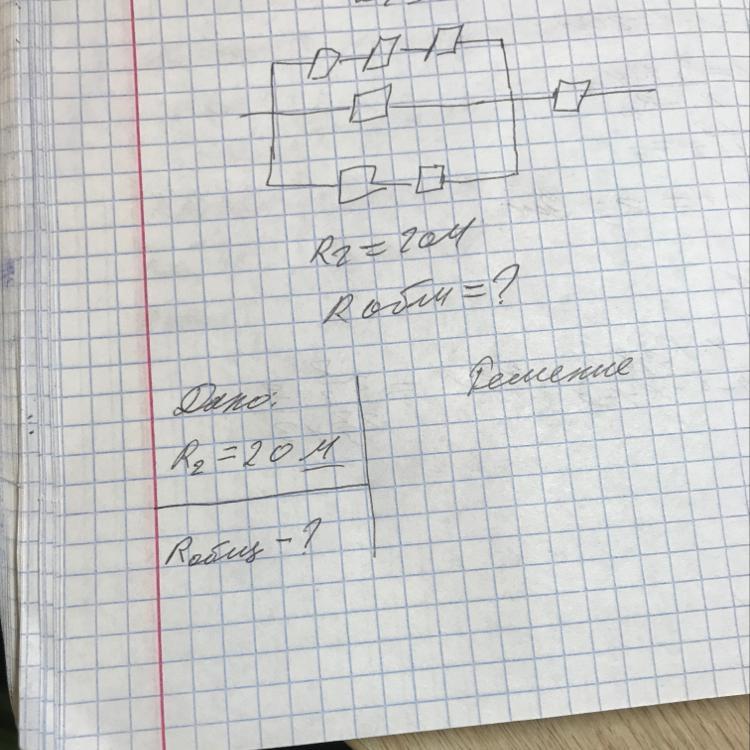 R2 = 2 ОМ
R общ = ?
Дано:
R2 = 2 О М
Rобщ - ?
Решение